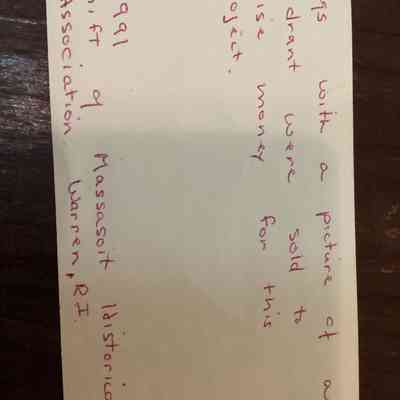 gs with a picture of a
drant were sold to
ise money for this
oject.
991
ift of Massasoit Historica
Association Warren, RI.